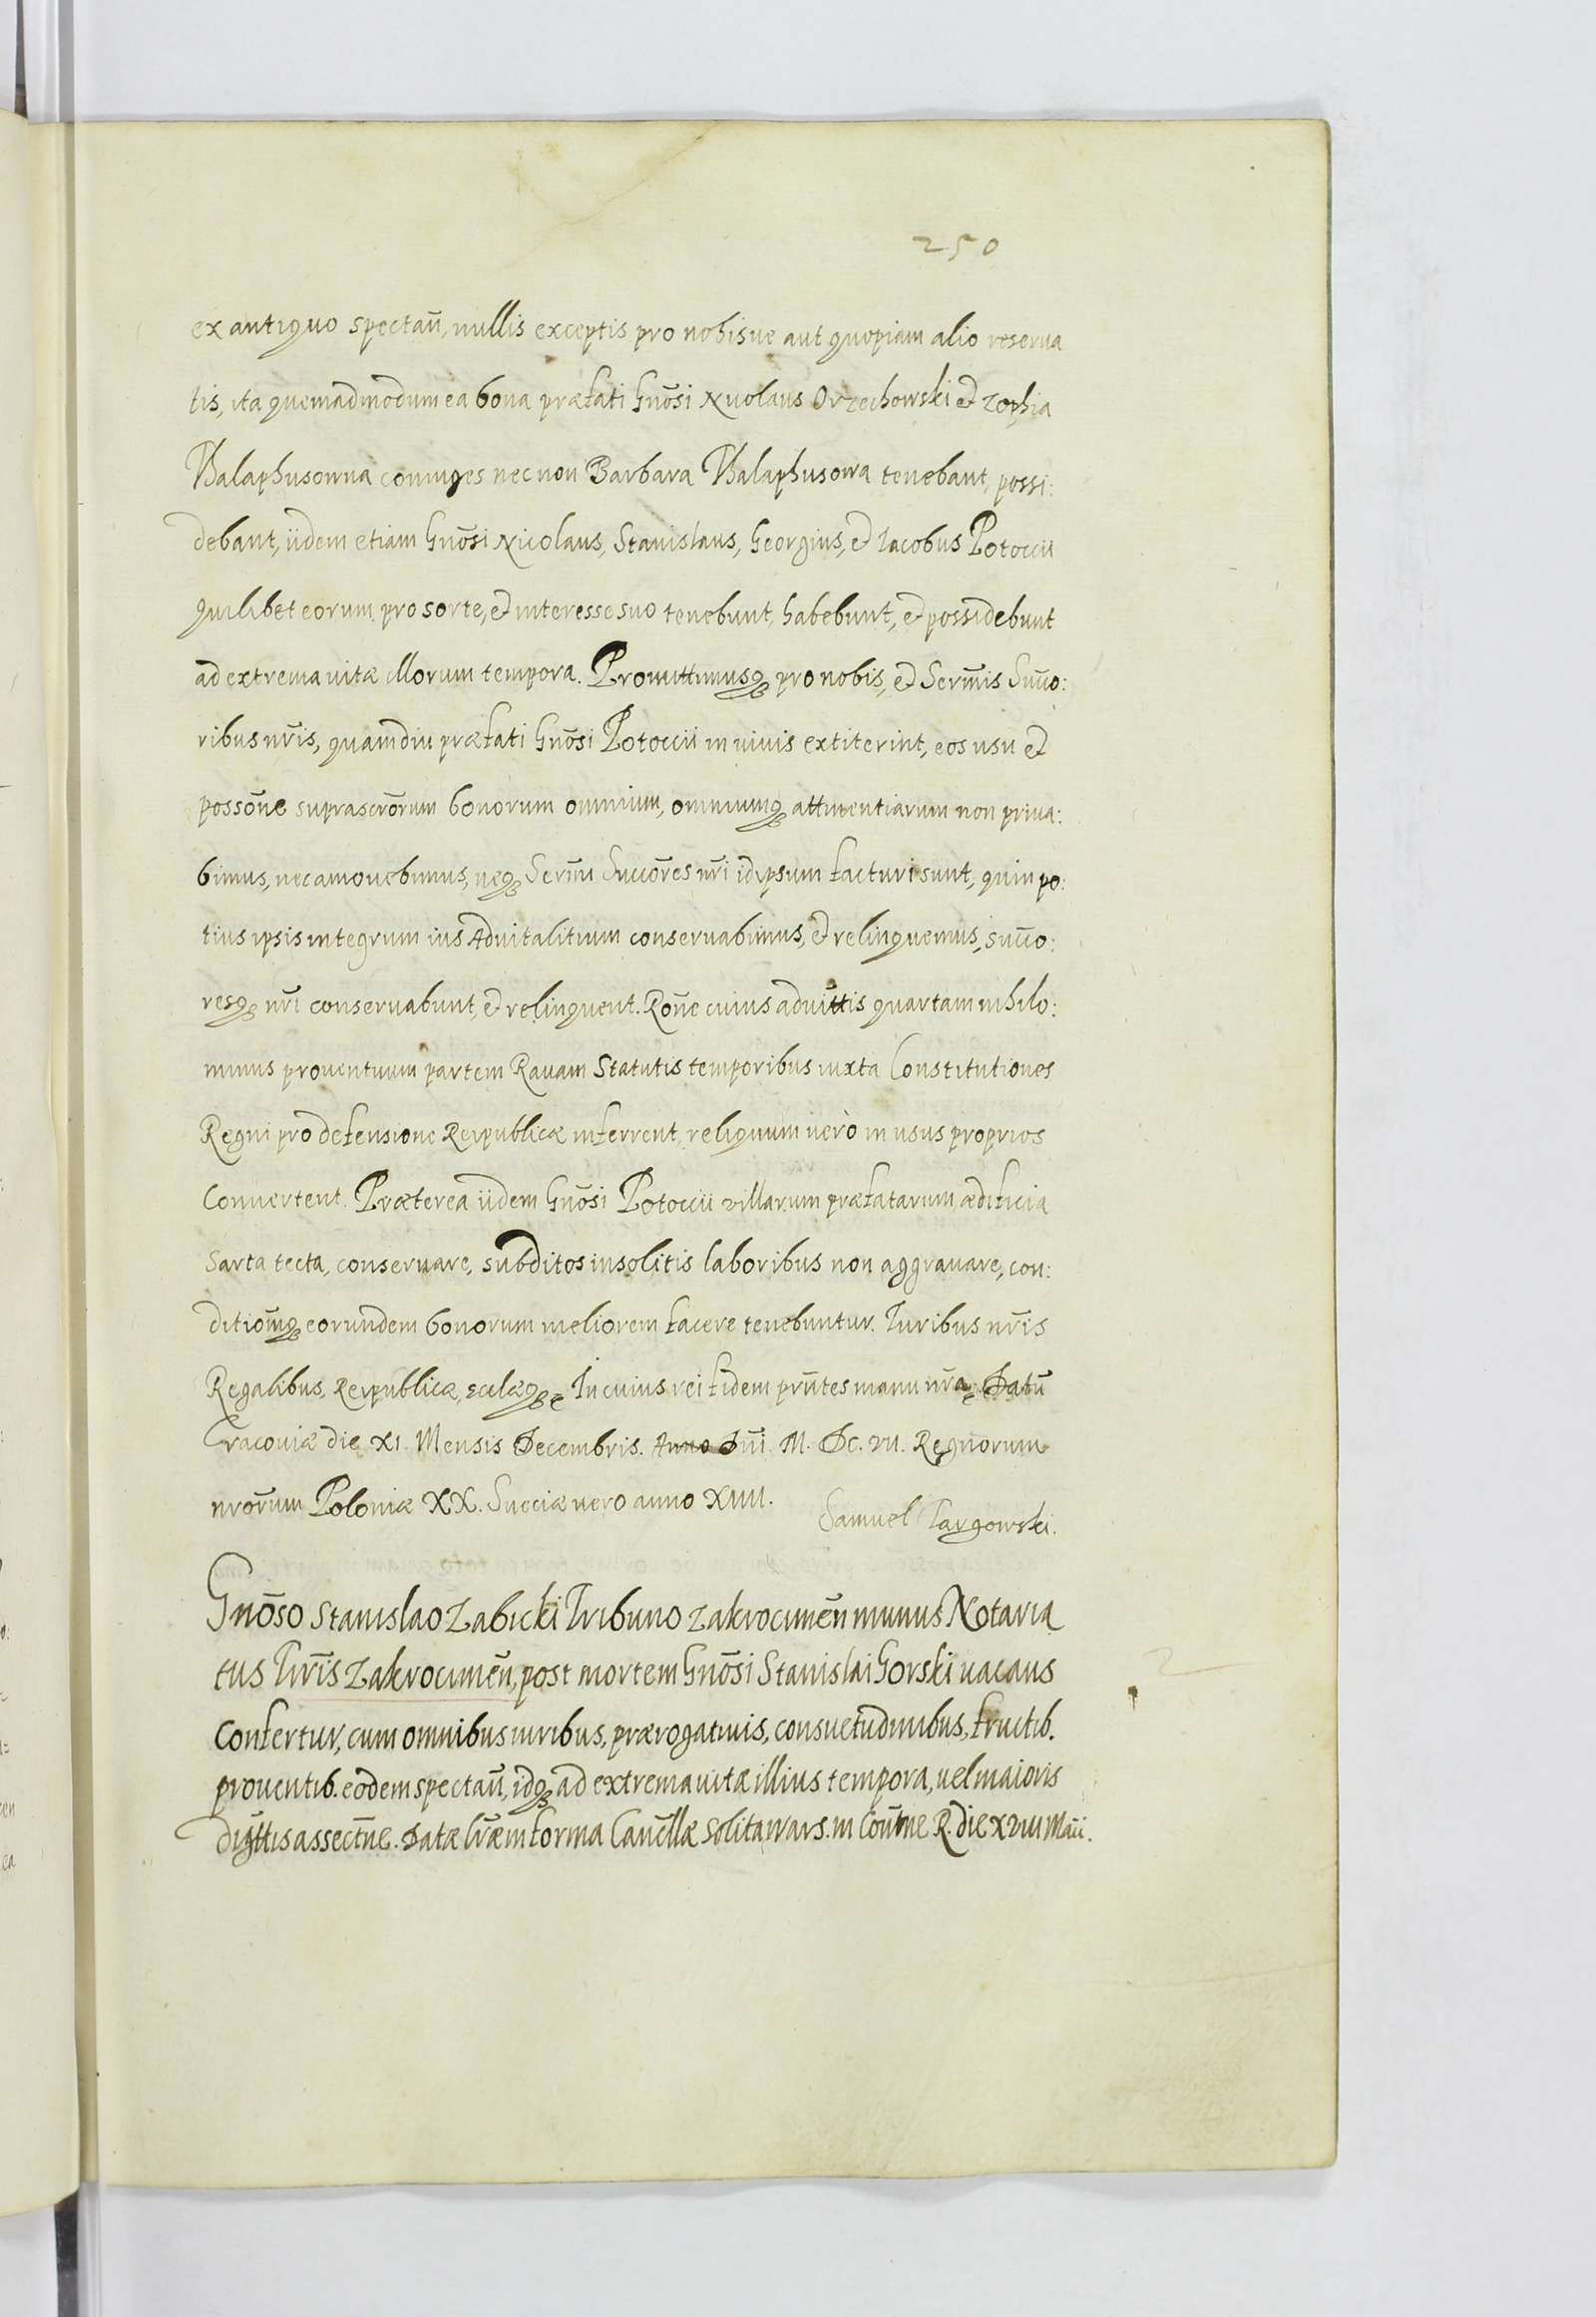 250
ex antiquo spectañ, nullis exceptis pro nobisue aut quopiam alio reserua
tis, ita quemadmodum ea bona præfati Gnõsi Nicolaus Orzechowski et Zophia
Thalaphusowna coniuges nec non Barbara Thalaphusowa tenebant, possi:
debant, iidem etiam Gnõsi Nicolaus, Stanislaus, Georgius, et Iacobus Potoccii
quilibet eorum pro sorte, et interesse suo tenebunt, habebunt, et possidebunt
ad extrema uitæ illorum tempora. Promittimusq; pro nobis, et Serm̃is Succo:
ribus nr̃is, quamdiu præfati Gnõsi Potoccii in viuis extiterint, eos usu et
possõne suprascrõrum bonorum omnium, omniumq; attinentiarum non priua:
bimus, nec amouebimus, neq; Serm̃i Succõres nr̃i id ipsum facturi sunt, quin po:
tius ipsis integrum ius Aduitalitium conseruabimus, et relinquemus, succo:
resq; nr̃i conseruabunt, et relinquent. Rõne cuius aduittis quartam nihilo:
minus prouentuum partem Rauam statutis temporibus iuxta Constitutiones
Regni pro defensione Reipublicæ inferrent, reliquum uerò in usus proprios
Conuertent. Præterea iidem Gnõsi Potoccii villarum præfatarum ædificia
sarta tecta, conseruare, subditos insolitis laboribus non aggrauare, con:
ditiom̃q; eorundem bonorum meliorem facere tenebuntur. Iuribus nr̃is
Regalibus, Reipublicæ, ecclæq; In cuius rei fidem prñtes manu nr̃a. Datũ
Cracouiæ die XI. Mensis Decembris. Anno Dñi M. DC. VII. Regnorum
nrõrum Poloniæ XX. Sueciæ uero anno XIIII.
Samuel Targowski.
Gnõso Stanislao Zabicki Tribuno Zakrocimeñ munus Notaria
tus Trr̃is Zakrocimeñ, post mortem Gnõsi Stanislai Gorski uacans
Confertur, cum omnibus iuribus, prærogatiuis, consuetudinibus, fructib.
prouentib. eodem spectañ, idq; ad extrema uitæ illius tempora, uel maioris
digttis assectñe. Datæ lr̃æ in forma Cancẽllæ solita Wars. in Conṽtne R. die XVIII Maii.